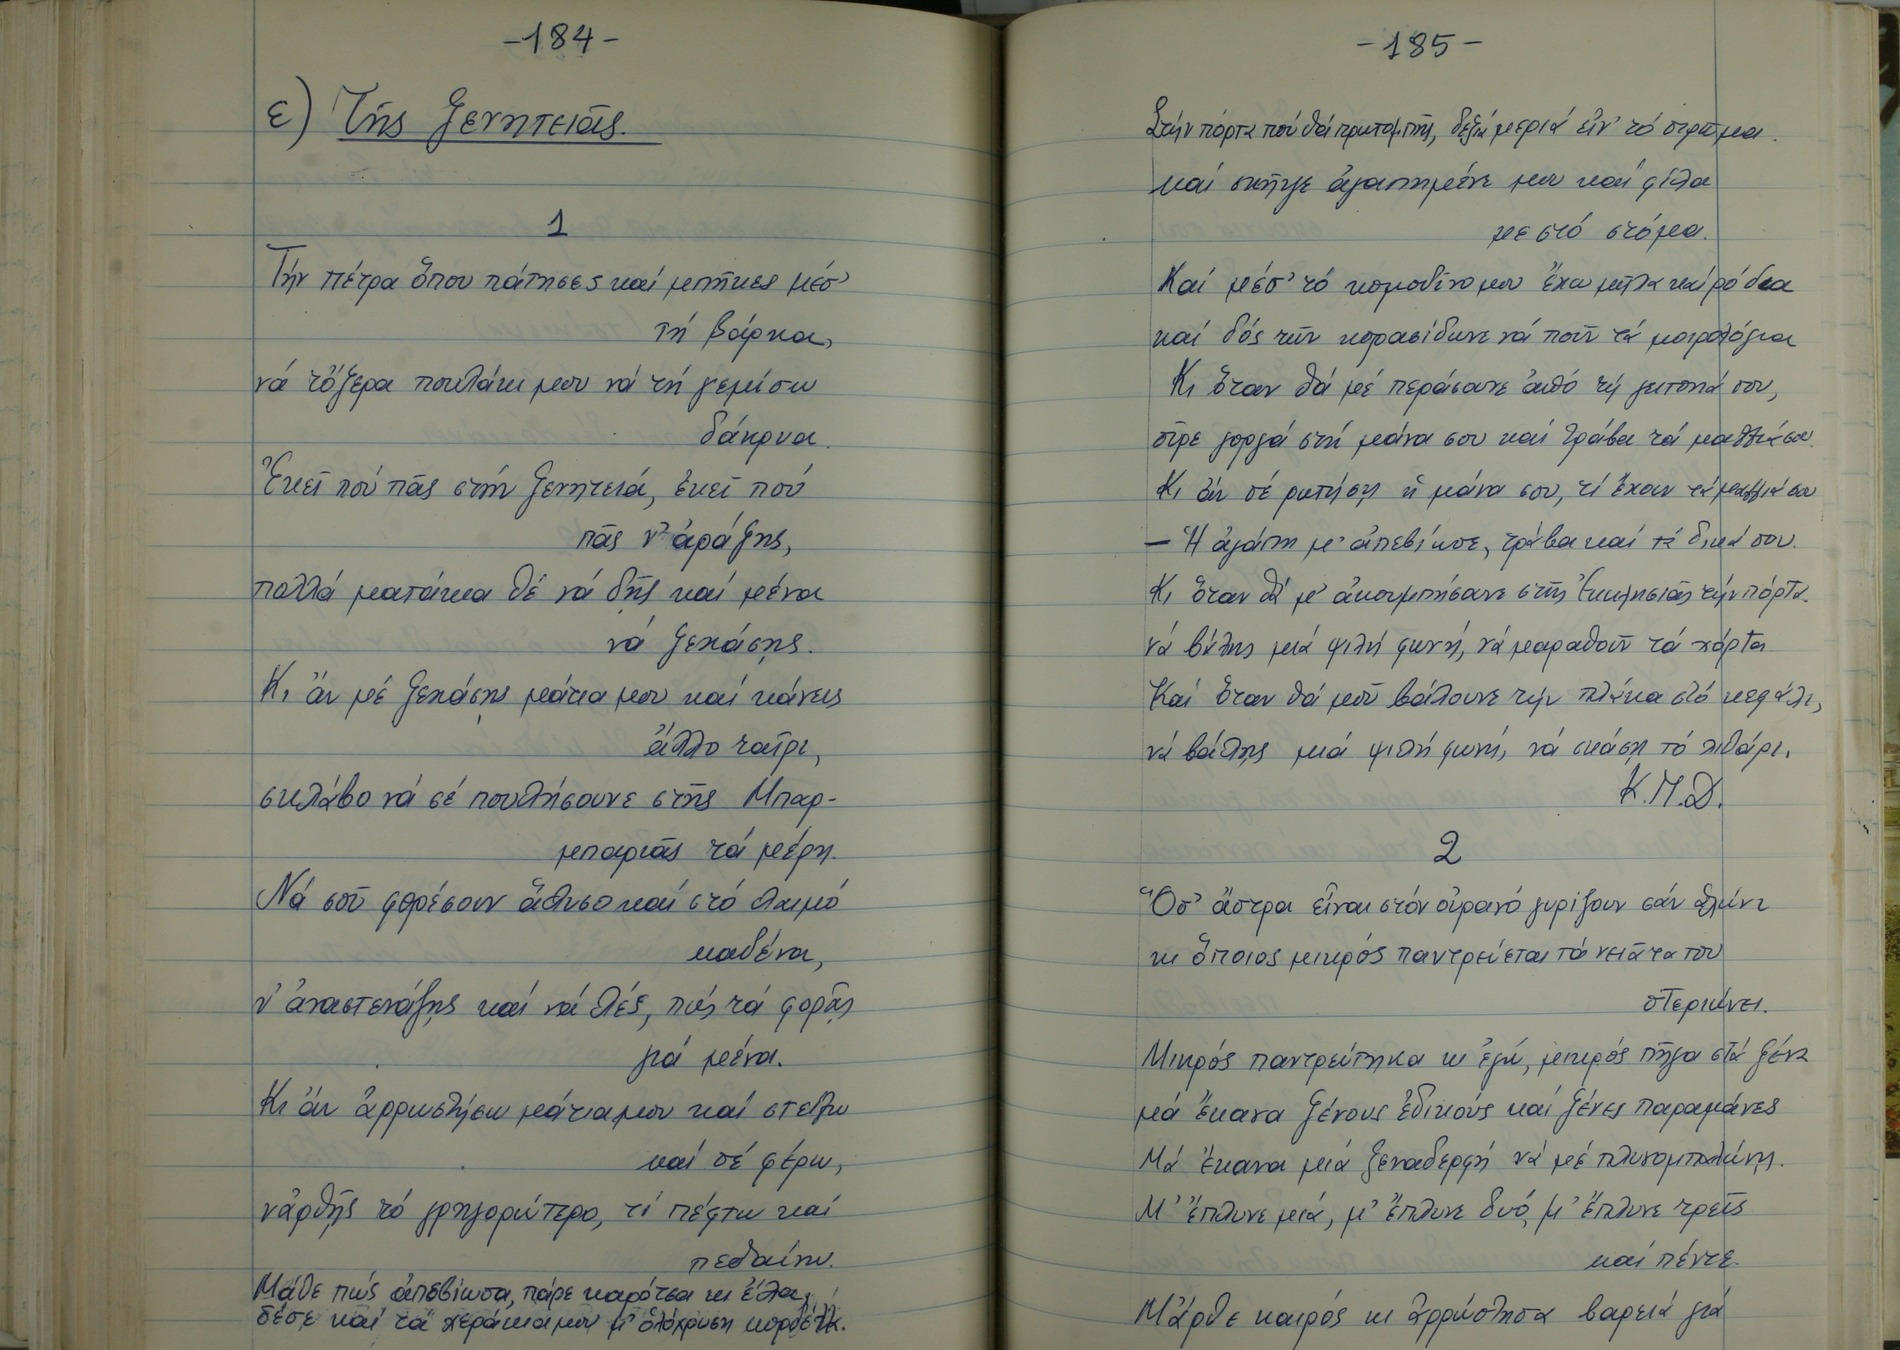 -184-
ε) Τῆς Ξενητειᾶς.
1
Τήν πέτρα ὅπου πάτησες καί μπῆκες μέσ'
τή βάρκα,
νά τὄξερα πουλάκι μου νά τή γεμίσω
δάκρυα.
Ἐκεῖ πού πᾶς στήν ξενητειά, ἐκεῖ πού
πᾶς ν' ἀράξης,
πολλά ματάκια θέ νά δῆς καί μένα
νά ξεχάσης.
Κι ἄν μέ ξεχάσης μάτια μου καί κάνεις
ἄλλο ταῖρι,
σκλάβο νά σέ πουλήσουνε στῆς Μπαρ-
μπαριᾶς τά μέρη.
Νά σοῦ φορέσουν ἅλυσο καί στό λαιμό
καδένα,
ν' ἀναστενάζης καί νά λές, πώς τά φορᾶς
γιά μένα.
Κι ἄν ἀρρωστήσω μάτια μου καί στείλω
καί σέ φέρω,
νἀρθῆς τό γρηγορώτερο, τί πέφτω καί
πεθαίνω.
Μάθε πώς ἀπεβίωσα, πάρε καρότσα κι ἔλα,
δέσε καί τά χεράκια μου μ' ὁλόχρυση κορδέλλα.
-185-
Στήν πόρτα πού θά πρωτομπῆς, δεξιά μεριά εἶν' τό στρῶμα.
καί σκῆψε ἀγαπημένε μου καί φίλα
με στό στόμα.
Καί μέσ' τό κομοδῖνο μου ἔχω μῆλα καί ρόδια
καί δός τῶν κορασίδωνε νά ποῦν τά μοιρολόγια
Κι ὅταν θά μέ περάσουνε ἀπό τή γειτονιά σου,
σῦρε γοργά στή μάνα σου καί τράβα τά μαλλιά σου.
Κι ἄν σέ ρωτήση ἡ μάνα σου, τί ἔχουν τά μαλλιά σου
— Ἡ ἀγάπη μ' ἀπεβίωσε, τράβα καί τά δικά σου.
Κι ὅταν θά μ' ἀκουμπήσουνε στῆς Ἐκκλησιᾶς τήν πόρτα.
νά βάλης μιά ψιλή φωνή, νά μαραθοῦν τά χόρτα
Καί ὅταν θά μοῦ βάλουνε τήν πλάκα στό κεφάλι,
νά βάλης μιά ψιλή φωνή, νά σκάση τό λιθάρι.
Κ.Π.Δ.
2
Ὅσ' ἄστρα εἶναι στόν οὐρανό γυρίζουν σάν ἁλώνι
κι ὅποιος μικρός παντρεύεται τά νειᾶτα του
στεριώνει.
Μικρός παντρεύτηκα κι ἐγώ, μικρός πῆγα στά ξένα
μά ἔκανα ξένους ἐδικούς καί ξένες παραμάνες
Μά ἔκανα μιά ξεναδερφή νά μέ πλυνομπαλώνη.
Μ' ἔπλυνε μιά, μ' ἔπλυνε δυό, μ' ἔπλυνε τρεῖς
καί πέντε.
Μἄρθε καιρός κι ἀρρώστησα βαρειά γιά